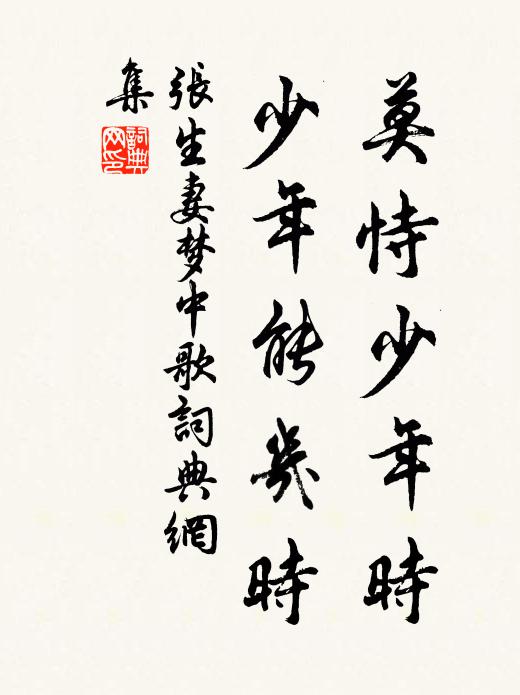 莫恃少年時
少年能幾時
張生妻梦中歌詞典網
集
詞典
网印